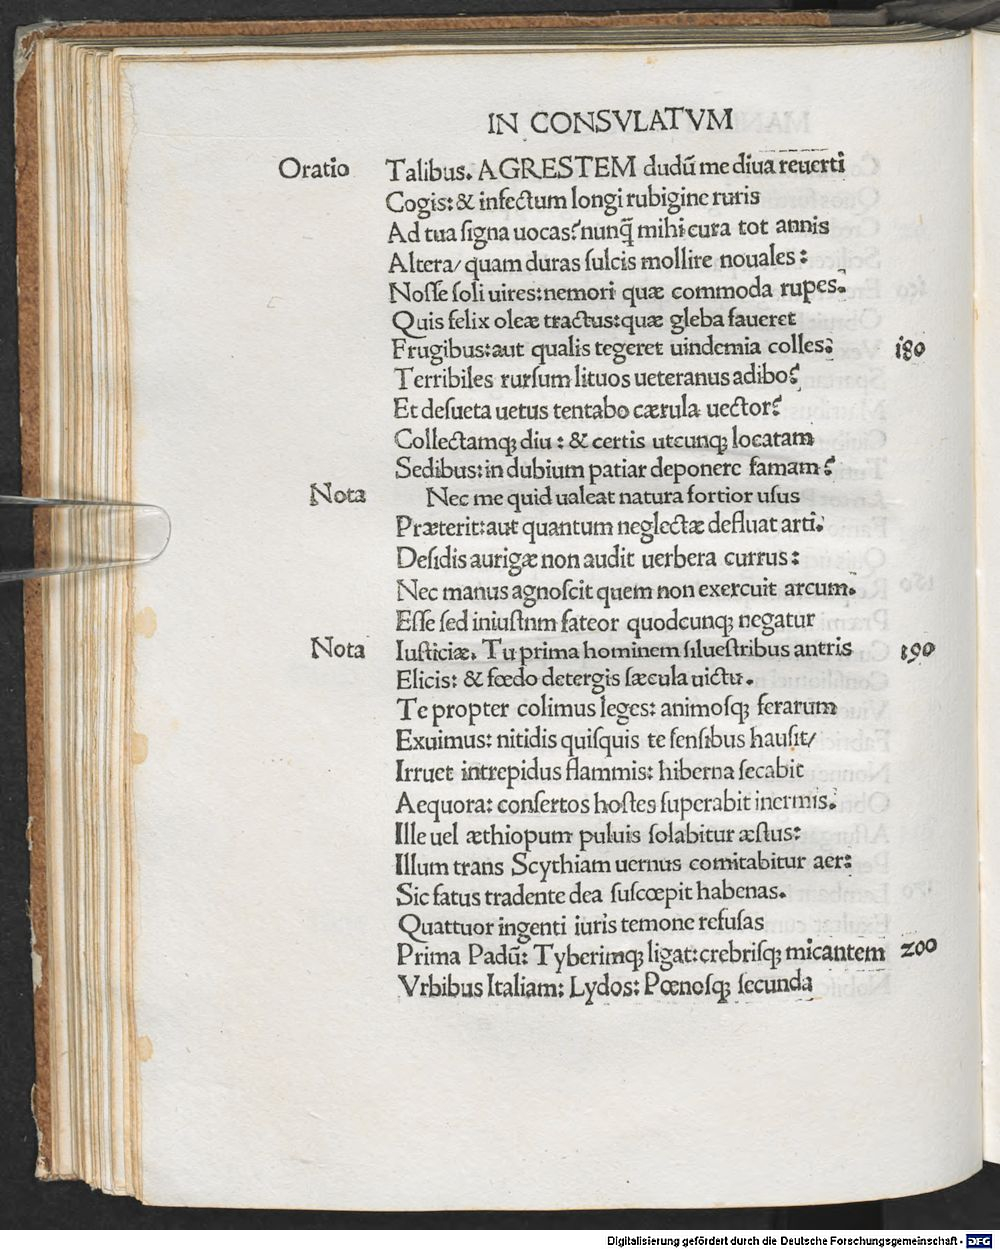 IN CONSVLATVM
Oratio Talibus. AGRESTEM dudū me diua reuerti
Cogis: & infectum longi rubigine ruris
Ad tua ſigna uocas? nunq̄ mihi cura tot annis
Altera/ quam duras ſulcis mollire nouales:
Noſſe ſoli uires: nemori quæ commoda rupes.
Quis felix oleæ tractus: quæ gleba faueret
Frugibus: aut qualis tegeret uindemia colles? 180
Terribiles rurſum lituos ueteranus adibo?
Et deſueta uetus tentabo cærula uector?
Collectamq; diu: & certis utcunq; locatam
Sedibus: in dubium patiar deponere famam?
Nota Nec me quid ualeat natura fortior uſus
Præterit: aut quantum neglectæ defluat arti.
Deſidis aurigæ non audit uerbera currus:
Nec manus agnoſcit quem non exercuit arcum.
Eſſe ſed iniuſtnm fateor quodcunq; negatur
Nota Iuſticiæ. Tu prima hominem ſilueſtribus antris 190
Elicis: & fœdo detergis ſæcula uictu.
Te propter colimus leges: animoſq; ferarum
Exuimus: nitidis quiſquis te ſenſibus hauſit/
Irruet intrepidus flammis: hiberna ſecabit
Aequora: conſertos hoſtes ſuperabit inermis.
Ille uel æthiopum puluis ſolabitur æſtus:
Illum trans Scythiam uernus comitabitur aer:
Sic fatus tradente dea ſuſcœpit habenas.
Quattuor ingenti iuris temone refuſas
Prima Padū: Tyberimq; ligat: crebriſq; micantem 200
Vrbibus Italiam: Lydos: Pœnoſq; ſecunda
Digitalisierung gefördert durch die Deutsche Forschungsgemeinschaft - DFG